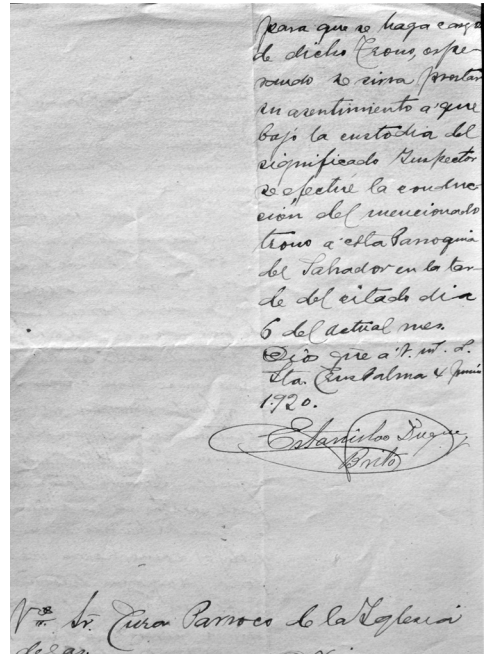 para que se haga cargo
de dicho Trono, espe-
rando se sirva prestar
su asentimiento a que
bajo la custodia del
significado Inspector
se efectúe la conduc-
ción del mencionado
trono a esta Parroquia
del Salvador en la tar-
de del citado dia
6 del actual mes.
Dios gue a V. m. a.
Sta. Cruz Palma 4 Junio
1920.
Estanislao Duque
Brito
Sr. Cura Parroco de la Iglesia